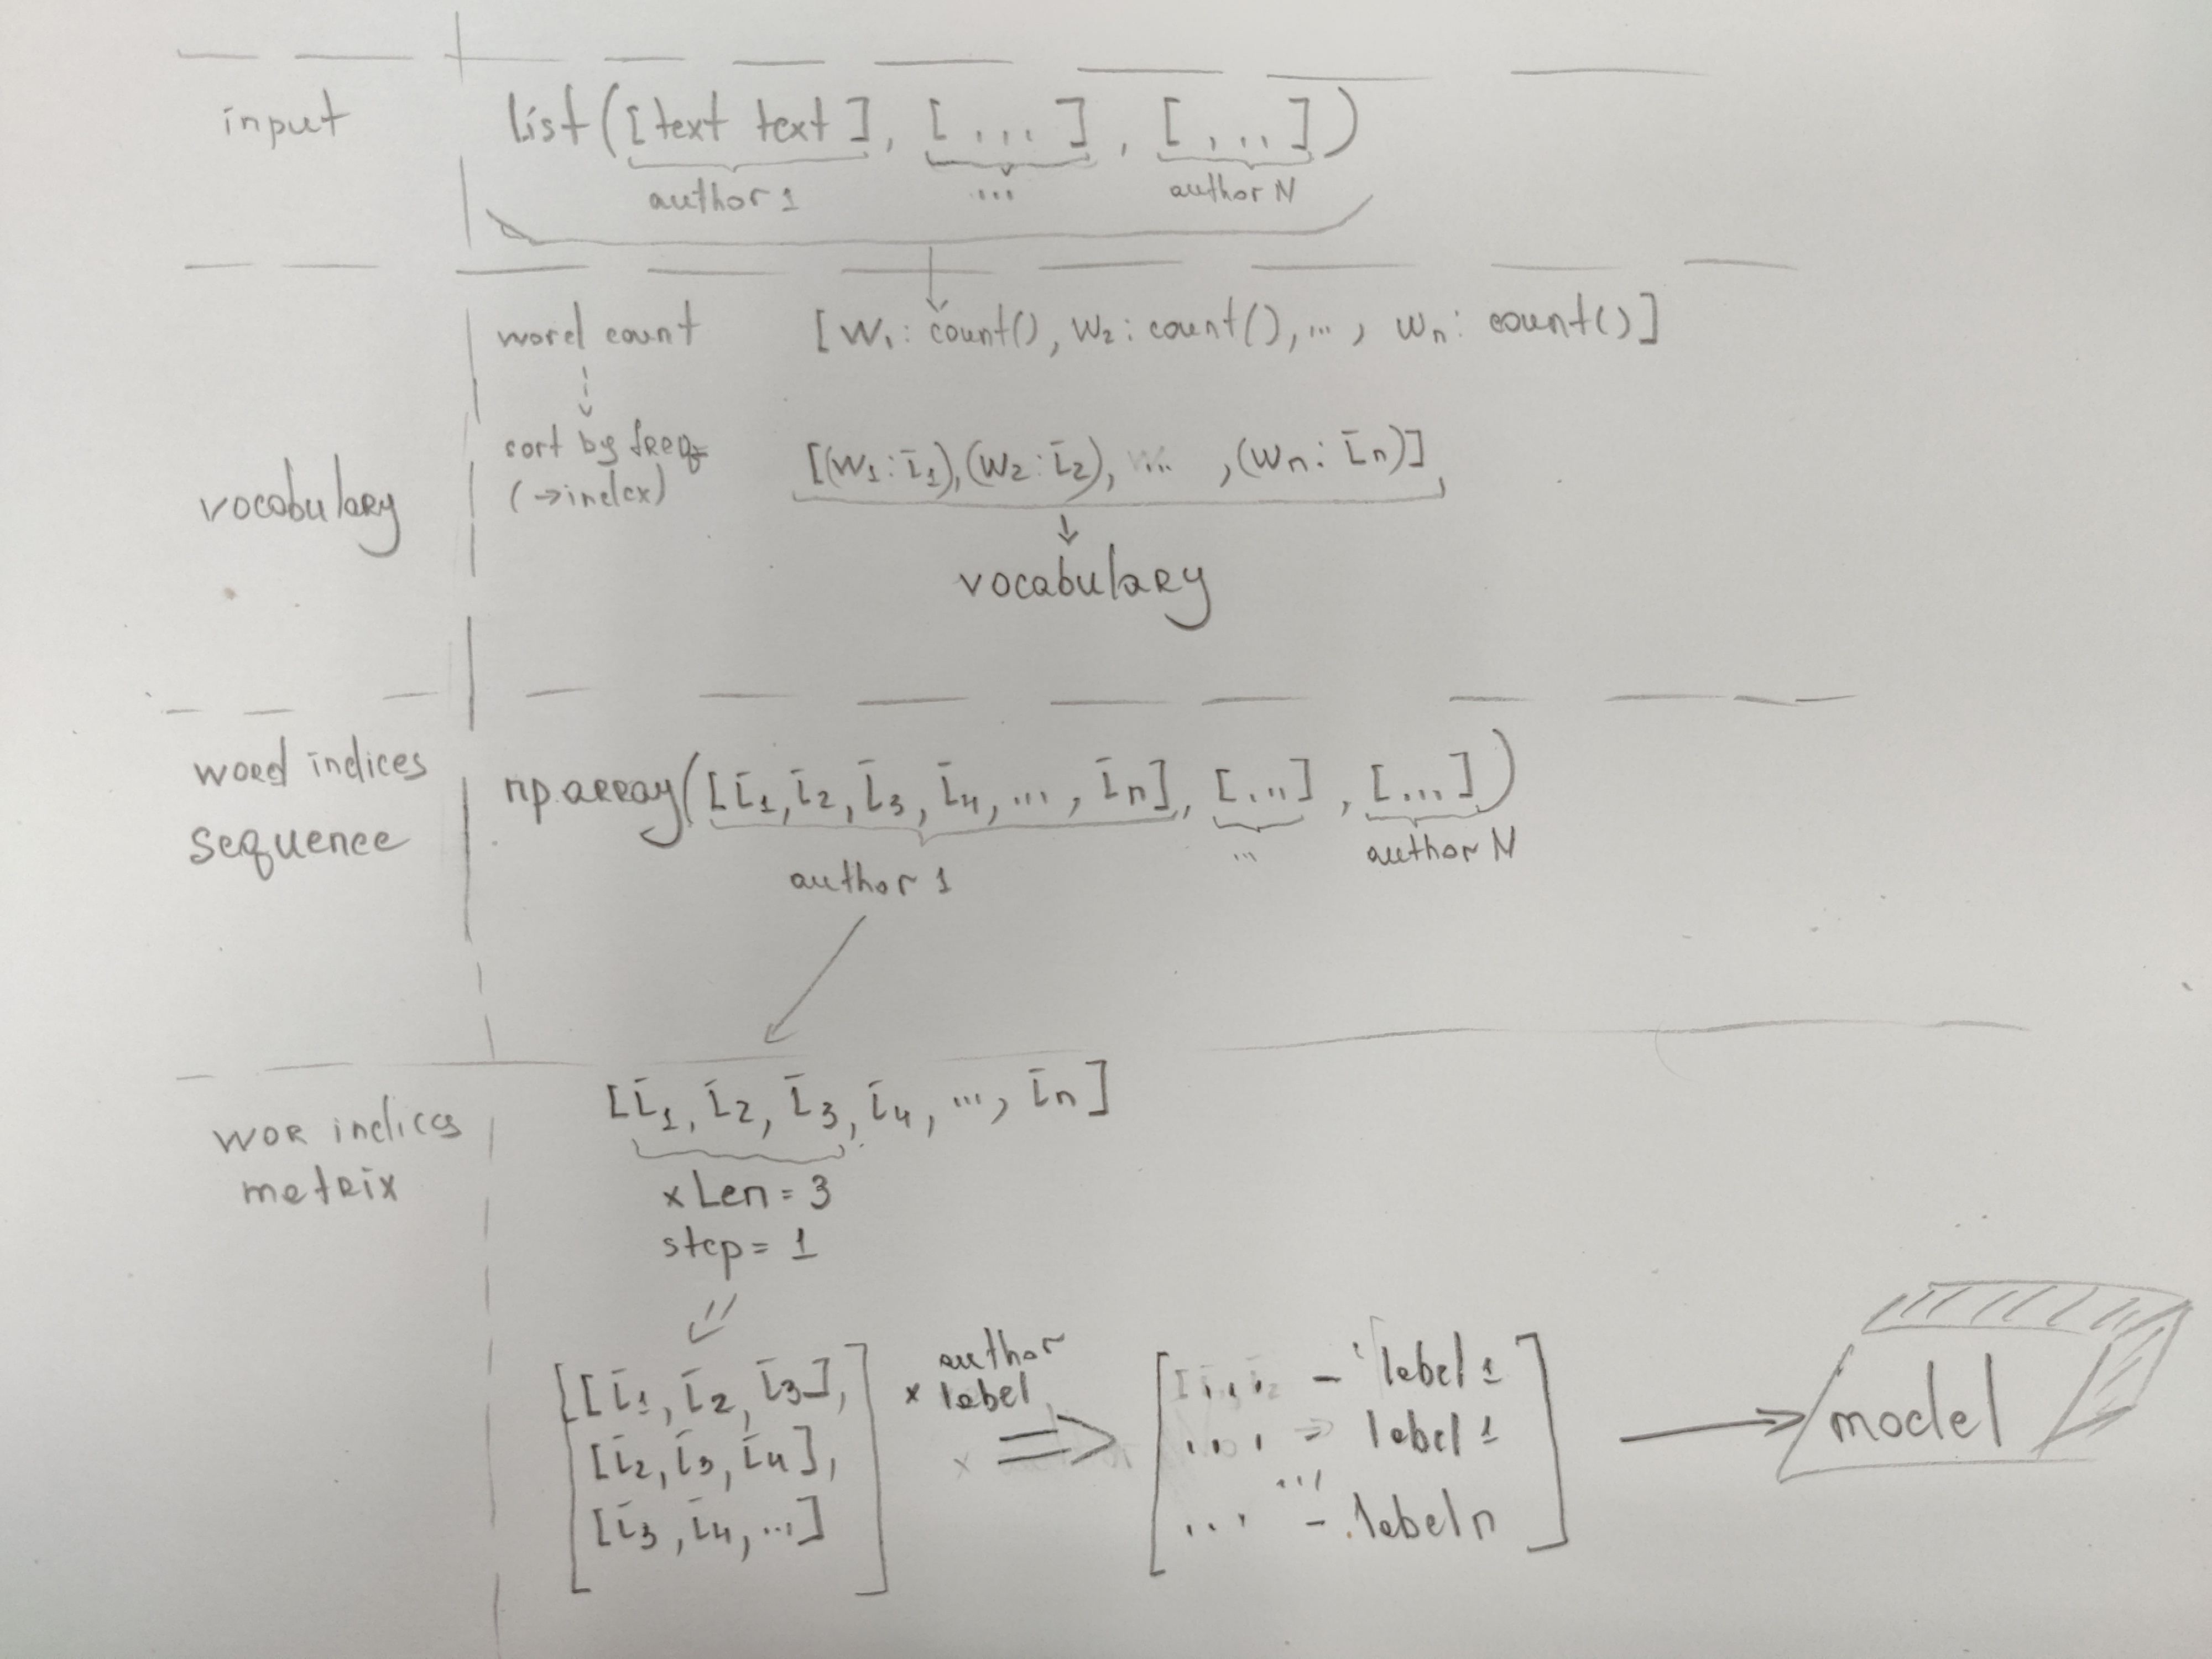 input
list([text text], [...], [,...])
author 1
...
author N
word count
[W₁: count(), W₂: count(),..., Wn: count()]
sort by freq
(→index)
[(W₁:i₁),(W₂:i₂), ... ,(Wn:in)]
vocabulary
vocabulary
word indices
sequence
np.array([i₁,i₂,i₃,i₄,...,in], [...], [...])
author 1
...
author N
wor indices
metrix
[i₁, i₂, i₃, i₄, ..., in]
xLen = 3
step = 1
[[i₁, i₂, i₃],
[i₂, i₃, i₄],
[i₃, i₄, ...]
]
x author
label
[... - label 1
... label 1
...
... - label n]
model